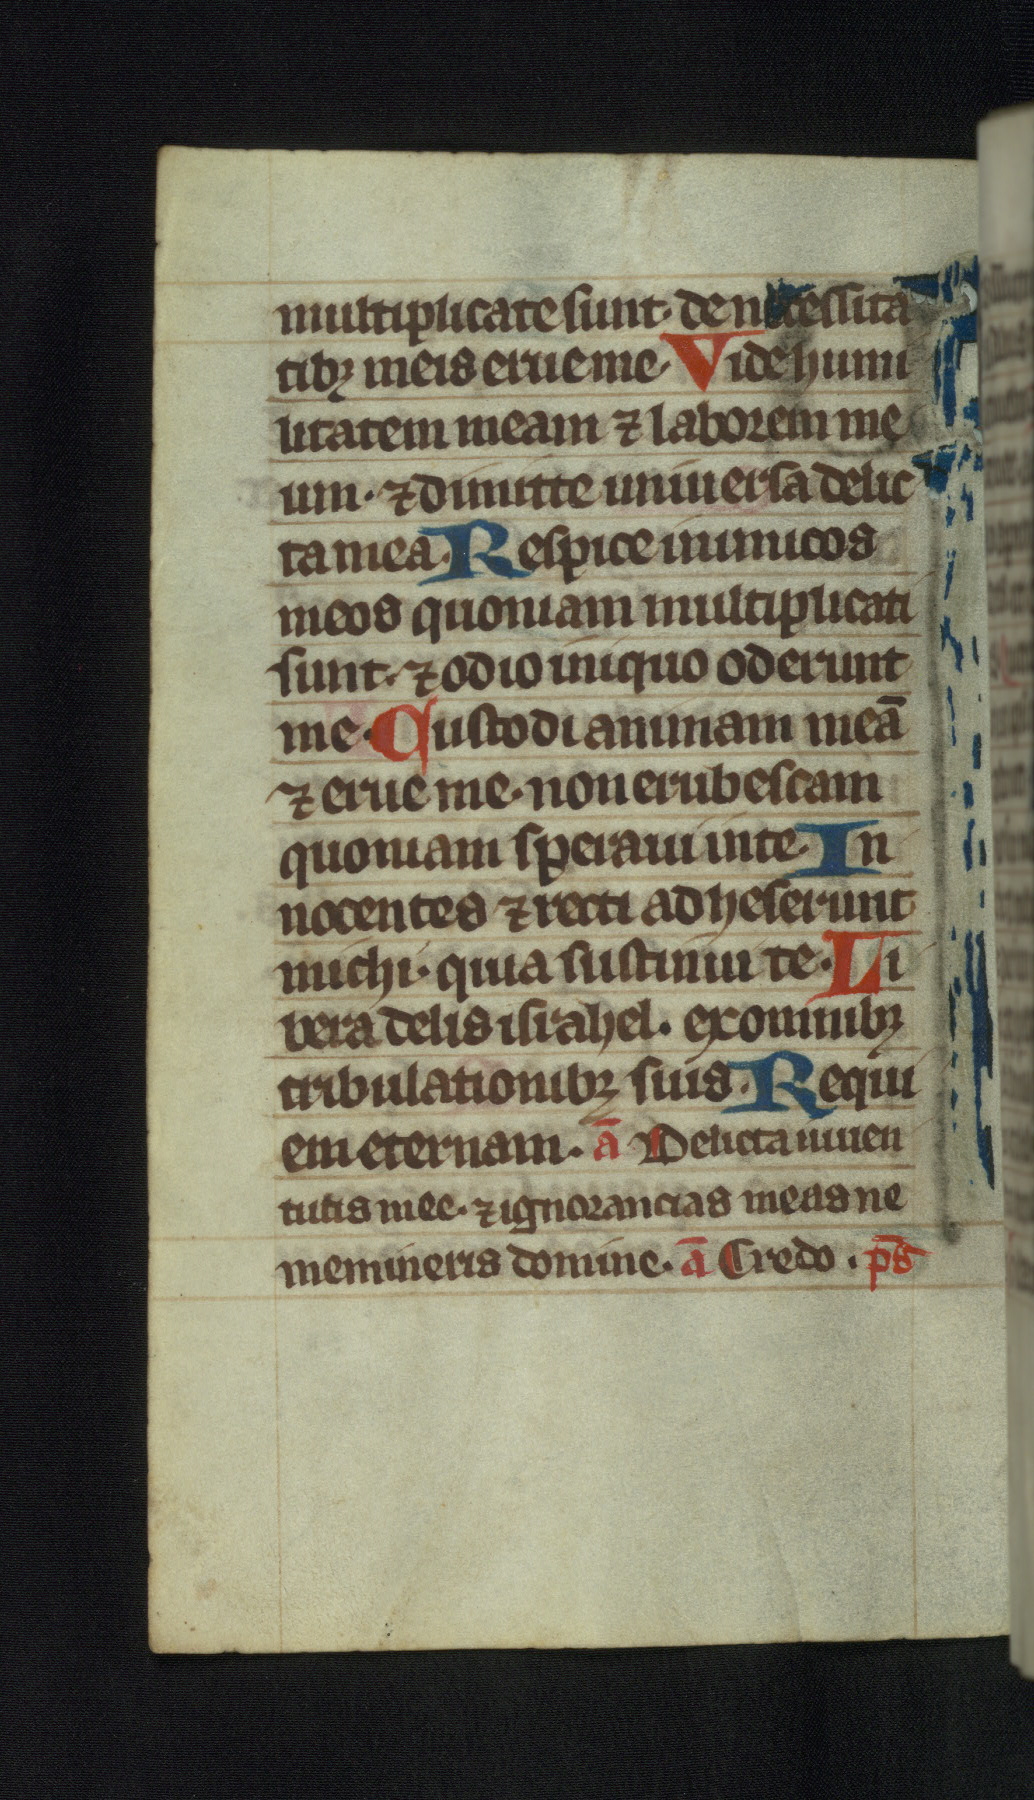 multiplicate sunt· de necessita
tibꝫ meis erue me· Vide humi
litatem meam ⁊ laborem me
um· ⁊ dimitte uniuersa delic
ta mea· Respice inimicos
meos quoniam multiplicati
sunt· ⁊ odio iniquo oderunt
me· Custodi animam meā
⁊ erue me· non erubescam
quoniam speraui in te· In
nocentes ⁊ recti adheserunt
michi· quia sustinui te· Li
bera deus israhel· ex omnibꝫ
tribulationibꝫ suis· Requi
em eternam· ā Delicta iuuen
tutis mee· ⁊ ignorancias meas ne
memineris domine· ā Credo · ps̄